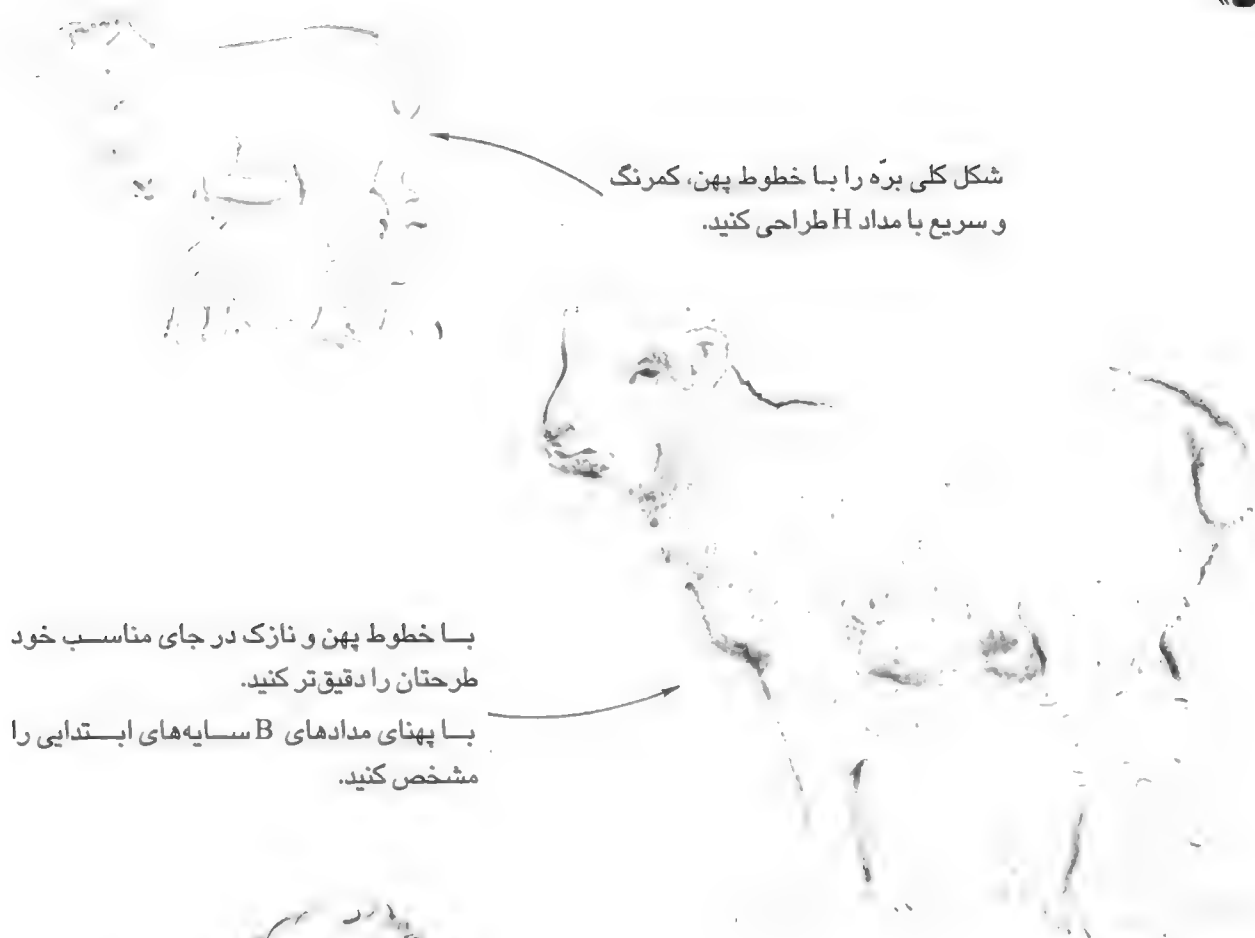 شکل کلی برّه را با خطوط پهن، کمرنگ
و سریع با مداد H طراحی کنید.
با خطوط پهن و نازک در جای مناسب خود
طرحتان را دقیق‌تر کنید.
با پهنای مدادهای B سایه‌های ابتدایی را
مشخص کنید.